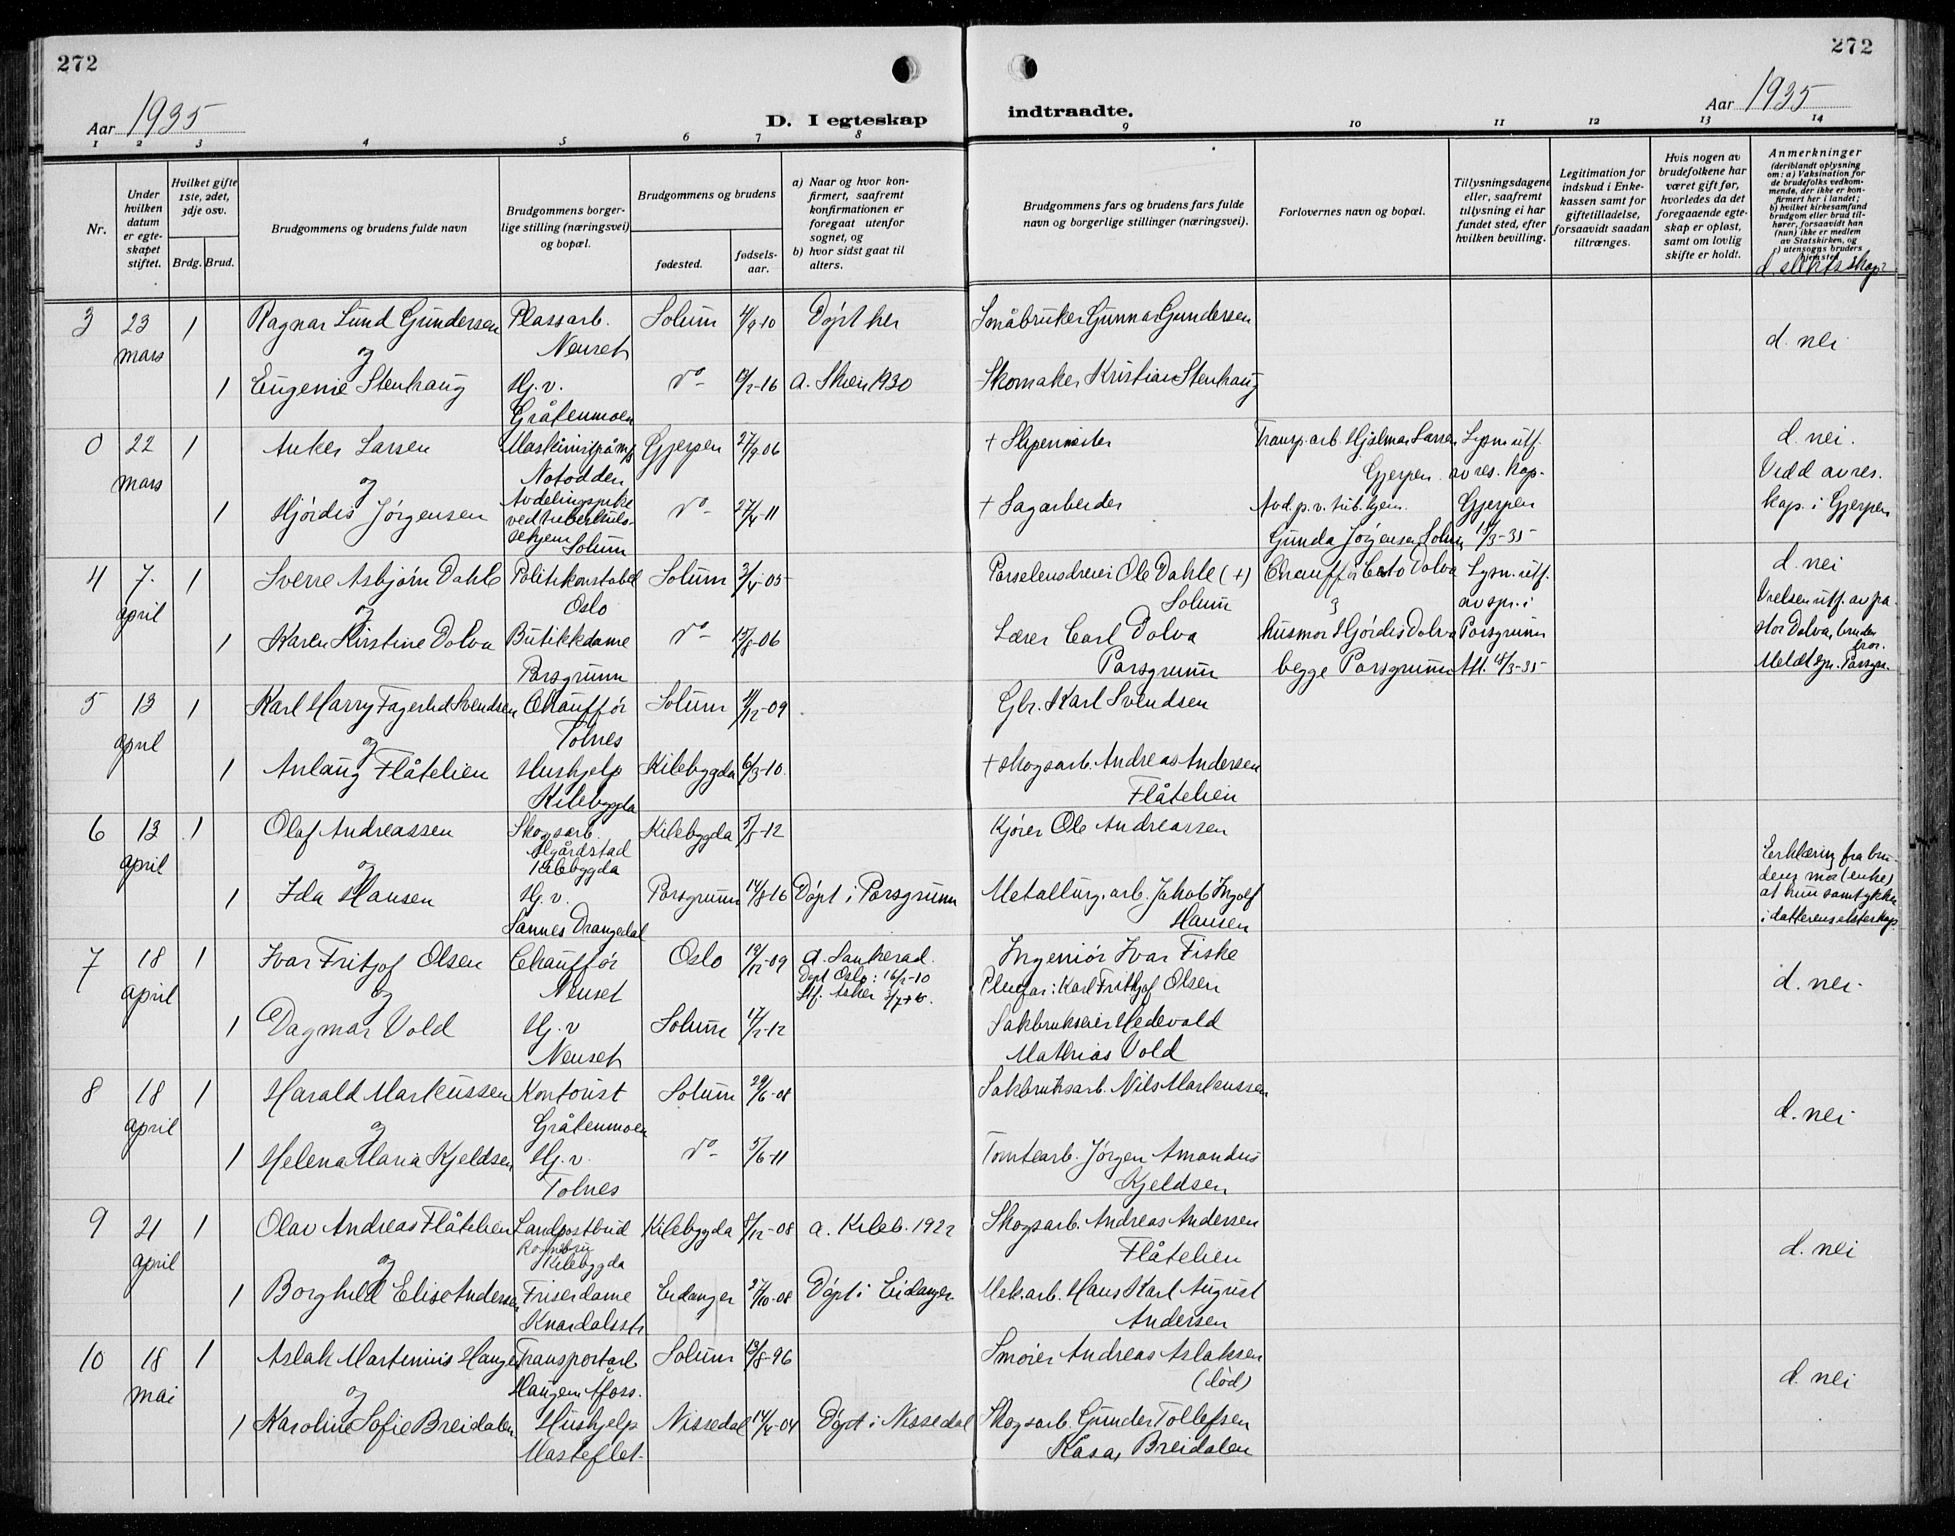 272
272
Aar 1935
D. I egteskap
indtraadte.
Aar 1935
1 2 3 4 5 6 7 8 9 10 11 12 13 14
Nr.
Under hvilken datum er egteskapet stiftet.
Hvilket gifte 1ste, 2det, 3dje osv.
Brdg. Brud.
Brudgommens og brudens fulde navn
Brudgommens borgerlige stilling (næringsvei) og bopæl.
Brudgommens og brudens
fødested.
fødselsaar.
a) Naar og hvor konfirmert, saafremt konfirmationen er foregaat utenfor sognet, og
b) hvor sidst gaat til alters.
Brudgommens fars og brudens fars fulde navn og borgerlige stillinger (næringsvei).
Forlovernes navn og bopæl.
Tillysningsdagene eller, saafremt tillysning ei har fundet sted, efter hvilken bevilling.
Legitimation for indskud i Enkekassen samt for giftetilladelse, forsaavidt saadan tiltrænges.
Hvis nogen av brudefolkene har været gift før, hvorledes da det foregaaende egteskap er opløst, samt om lovlig skifte er holdt.
Anmerkninger
(deriblandt oplysning om: a) Vaksination for de brudefolks vedkommende, der ikke er konfirmert her i landet; b) hvilket kirkesamfund brudgom eller brud tilhører, forsaavidt han (hun) ikke er medlem av Statskirken, og c) utensogns bruders hjemsted.
d. slektskap?
3 23 mars 1 Ragnar Lund Gundersen Plassarb. Nenset Solum 4/9-10 Døpt her Småbruker Gunnar Gundersen
og d. nei
1 Eugenie Stenhaug Hj.v. Gråtenmoen do a. Skien 1930 Skomaker Kristian Stenhaug
0 22 mars 1 Anker Larsen Maskinist på m/s Notodden Gjerpen 27/9-06 + Skipsmester Transp.arb. Hjalmar Larsen Gjerpen Lysn. utf. av res. kap. d. nei.
og Vidd av res. kap. i Gjerpen
1 Hjördis Jørgensen Avdelingspike ved tuberkulosehjem Solum do 27/4-11 + Sagarbeider Avd.p.v. tub.hjem. Gunda Jørgensen Solum Gjerpen
4 7. april 1 Sverre Asbjørn Dahle Politikonstabel Oslo Solum 3/4-05 Porselensdreier Ole Dahle (+) Solum Chauffør Cato Dolva Lysn. utf. av spr. i d. nei
og
1 Karen Kirstine Dolva Butikkdame Porsgrunn do 15/8-06 Lærer Carl Dolva Porsgrunn husmor Hjördis Dolva begge Porsgrunn Porsgrunn Att. 18/3-35 Vielsen utf. av pastor Dolva, brudens bror. Meldt spr. Porsgr.
5 13 april 1 Karl Harry Fagerlid Svendsen Chauffør Tolnes Solum Gbr. Karl Svendsen
og
1 Anlaug Flåtelien Hushjelp Kilebygda Kilebygda 6/3-10. + skogsarb. Andreas Andersen Flåtelien
6 13 april 1 Olaf Andreassen Skogsarb. Kilebygda Kilebygda 5/5-12 Kjører Ole Andreassen
og Erklæring fra brudens mor (enke) at hun samtykker i datterens ekteskap
1 Ida Hansen Hj.v. Sannes Drangedal Porsgrunn 14/8-16 Døpt i Porsgrunn Metallurg. arb. Jakob Ingolf Hansen
7 18 april 1 Ivar Fritjof Olsen Chauffør Nenset Oslo 12/12-09 a. Sauherad. Døpt Oslo: 16/2-10 Ingeniør Ivar Fiske Pleiefar: Karl Fritjof Olsen d. nei
og
1 Dagmar Vold Hj.v Nenset Solum 17/2-12 Mathias Vold
8 18 april 1 Harald Markussen Kontorist Gråtenmoen Solum 29/6-08 Sakbruksarb. Nils Markussen d. nei
og
1 Helena Maria Kjeldsen Hj.v. Tolnes do 5/6-11 Tomtearb. Jørgen Amandus Kjeldsen
9 21 april 1 Olav Andreas Flåtelien Landpostbud Kilebygda Kilebygda 8/12-08 a. Kileb. 1922 Skogsarb. Andreas Andersen Flåtelien d. nei
og
1 Borghild Elise Andersen Friserdame Knardalsstr Eidanger 27/10-08 Døpt i Eidanger Mek.arb. Hans Karl August Andersen
10 18 mai 1 Aslak Martinius Haugen Transportarb Haugen Afoss. Solum 13/8-96 Smører Andreas Aslaksen (død) d. nei
og
1 Karoline Sofie Breidalen Hushjelp Masteflet. Nissedal 14/4-04 Døpt i Nissedal Skogsarb. Gunder Tollefsen Kåsa, Breidalen